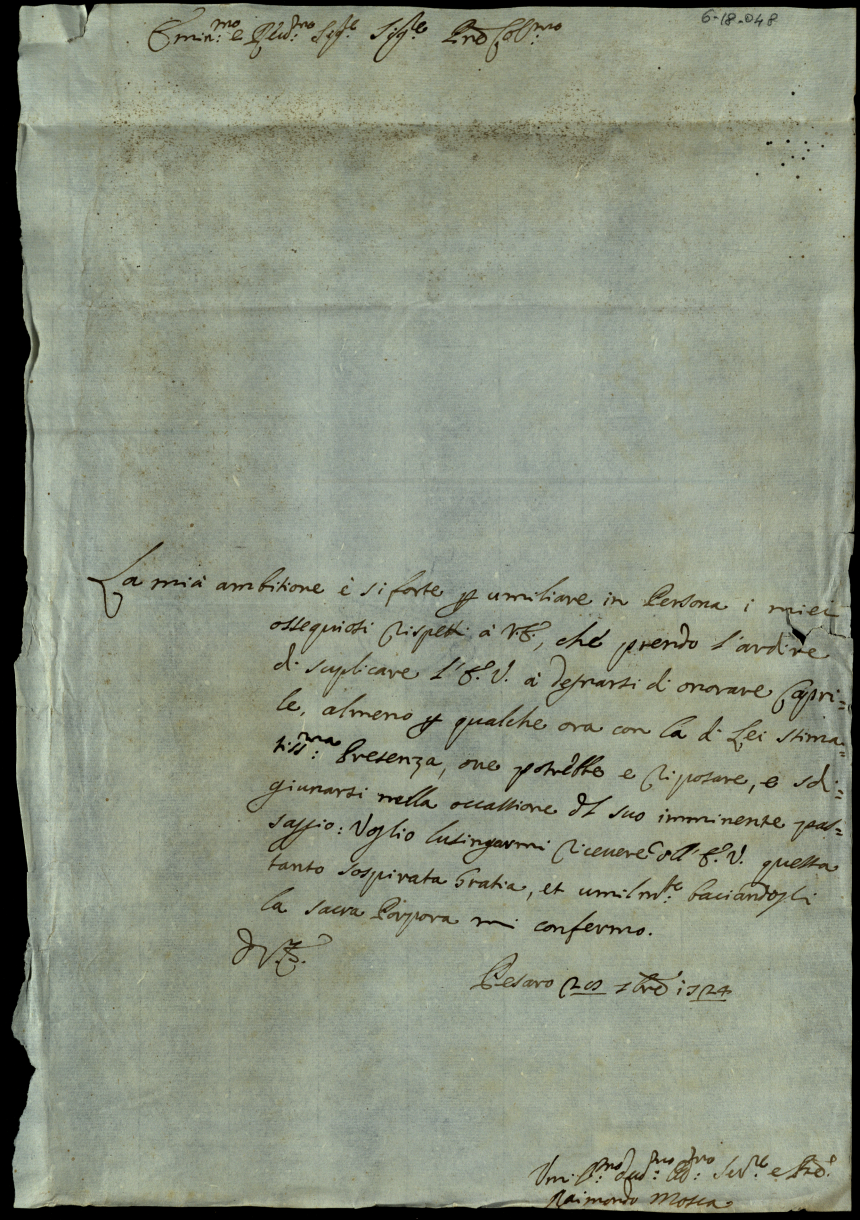 6-18-048
Emin.mo e Rev.mo Sig.re Sig.re Prõ Col.mo
La mia ambitione è si forte ꝑ umiliare in Persona i miei
ossequiosi rispetti à V.E., che prendo l'ardire
di suplicare l'E.V. à degnarsi di onorare Capri=
le, almeno ꝑ qualche ora con la di Lei stima=
tiss.ma Presenza, oue potrebbe e riposare, e sdi=
giunarsi nella occassione dl suo imminente pas=
saggio: Voglio lusingarmi riceuere dall'E.V. questa
tanto sospirata Gratia, et umilm.te baciandogli
la sacra Porpora mi confermo.
D V.E.
Pesaro 1724
Umil.mo Dev.mo Serv.re
Raimondo Mosca